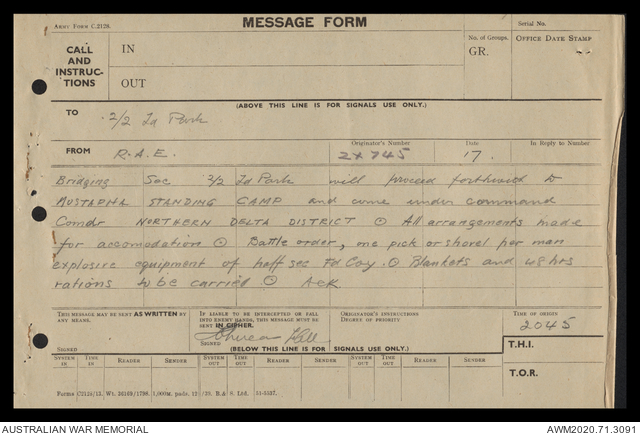 ARMY FORM C.2128.
MESSAGE FORM
Serial No.
CALL AND INSTRUC-TIONS
IN
OUT
No. of Groups.
GR.
OFFICE DATE STAMP
(ABOVE THIS LINE IS FOR SIGNALS USE ONLY.)
TO 2/2 Fd Park
FROM R.A.E.
Originator's Number 2X745
Date 17.
In Reply to Number
Bridging Sec 2/2 Fd Park will proceed forthwith to
MUSTAPHA STANDING CAMP and come under command
Comdr NORTHERN DELTA DISTRICT ⊙ All arrangements made
for accomodation ⊙ Battle order, one pick or shovel per man
explosive equipment of half sec Fd Coy ⊙ Blankets and 48 hrs
rations to be carried ⊙ Ack
THIS MESSAGE MAY BE SENT AS WRITTEN BY ANY MEANS.
IF LIABLE TO BE INTERCEPTED OR FALL INTO ENEMY HANDS, THIS MESSAGE MUST BE SENT IN CIPHER.
ORIGINATOR'S INSTRUCTIONS
DEGREE OF PRIORITY
TIME OF ORIGIN
2045
SIGNED
SIGNED
(BELOW THIS LINE IS FOR SIGNALS USE ONLY.)
T.H.I.
T.O.R.
SYSTEM IN
TIME IN
READER
SENDER
SYSTEM OUT
TIME OUT
READER
SENDER
SYSTEM OUT
TIME OUT
READER
SENDER
AUSTRALIAN WAR MEMORIAL
AWM2020.71.3091